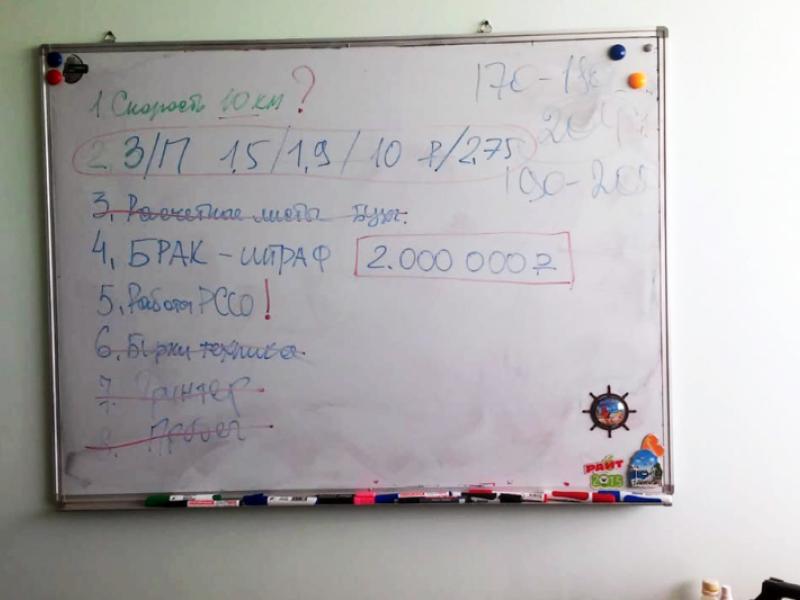 1. Скорость 10 км ?
170-190
204
2. З/П 1,5/1,9/10 ₽/2,75
190-205
3. Расчетные листы Бухг.
4. БРАК - ШТРАФ 2.000 000 ₽
5. Работа РССО!
6. Бирки техника
7. Принтер
8. Пробег
РАЙТ
2015